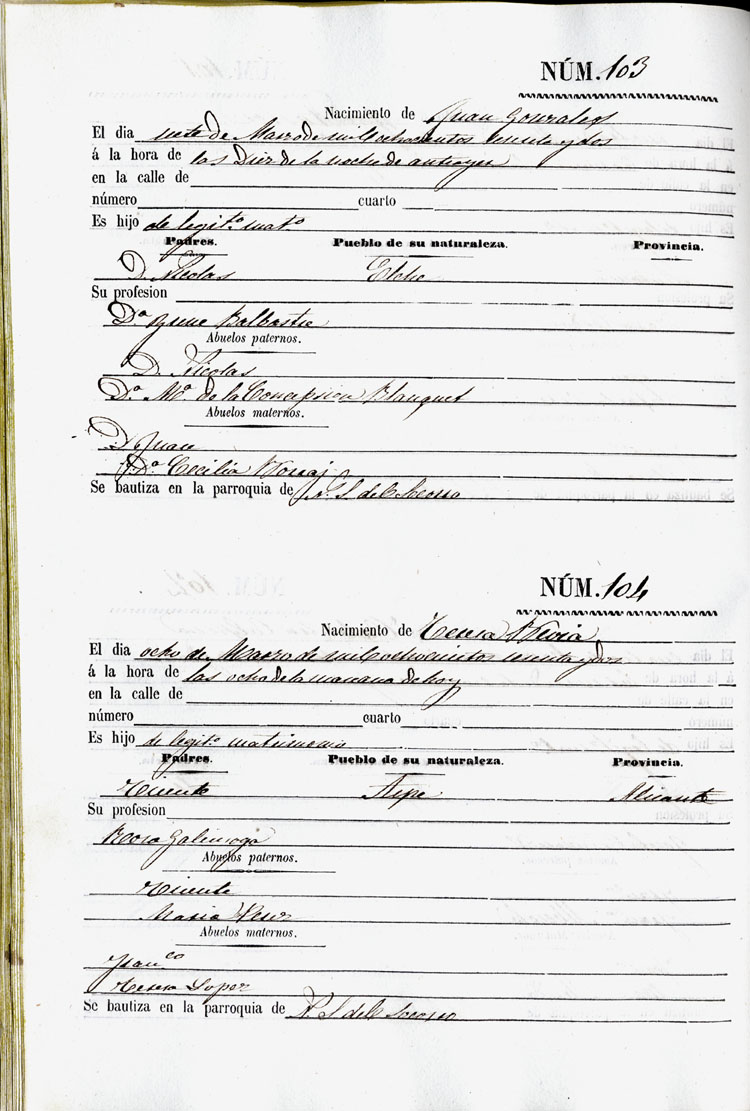 NÚM. 103
Nacimiento de Juan Gonzales
El dia siete de Marzo de mil ochocientos sesenta y dos
á la hora de las Diez de la noche de antayer
en la calle de
número cuarto
Es hijo de legit.º mat.º
Padres. Pueblo de su naturaleza. Provincia.
D. Nicolas Elche
Su profesion
D.ª Balbastre
Abuelos paternos.
D. Nicolas
D.ª M.ª de la Concepsion Blanquet
Abuelos maternos.
D. Juan
D.ª Cecilia
Se bautiza en la parroquia de N. S. del Socorro
NÚM. 104
Nacimiento de Teresa
El dia ocho de Marzo de mil ochocientos sesenta y dos
á la hora de las ocho de la mañana de hoy
en la calle de
número cuarto
Es hijo de legit.º matrimonio
Padres. Pueblo de su naturaleza. Provincia.
Vicente Aspe Alicante
Su profesion
Rosa
Abuelos paternos.
Vicente
Maria
Abuelos maternos.
Fran.co
Teresa Lopez
Se bautiza en la parroquia de N. S. del Socorro